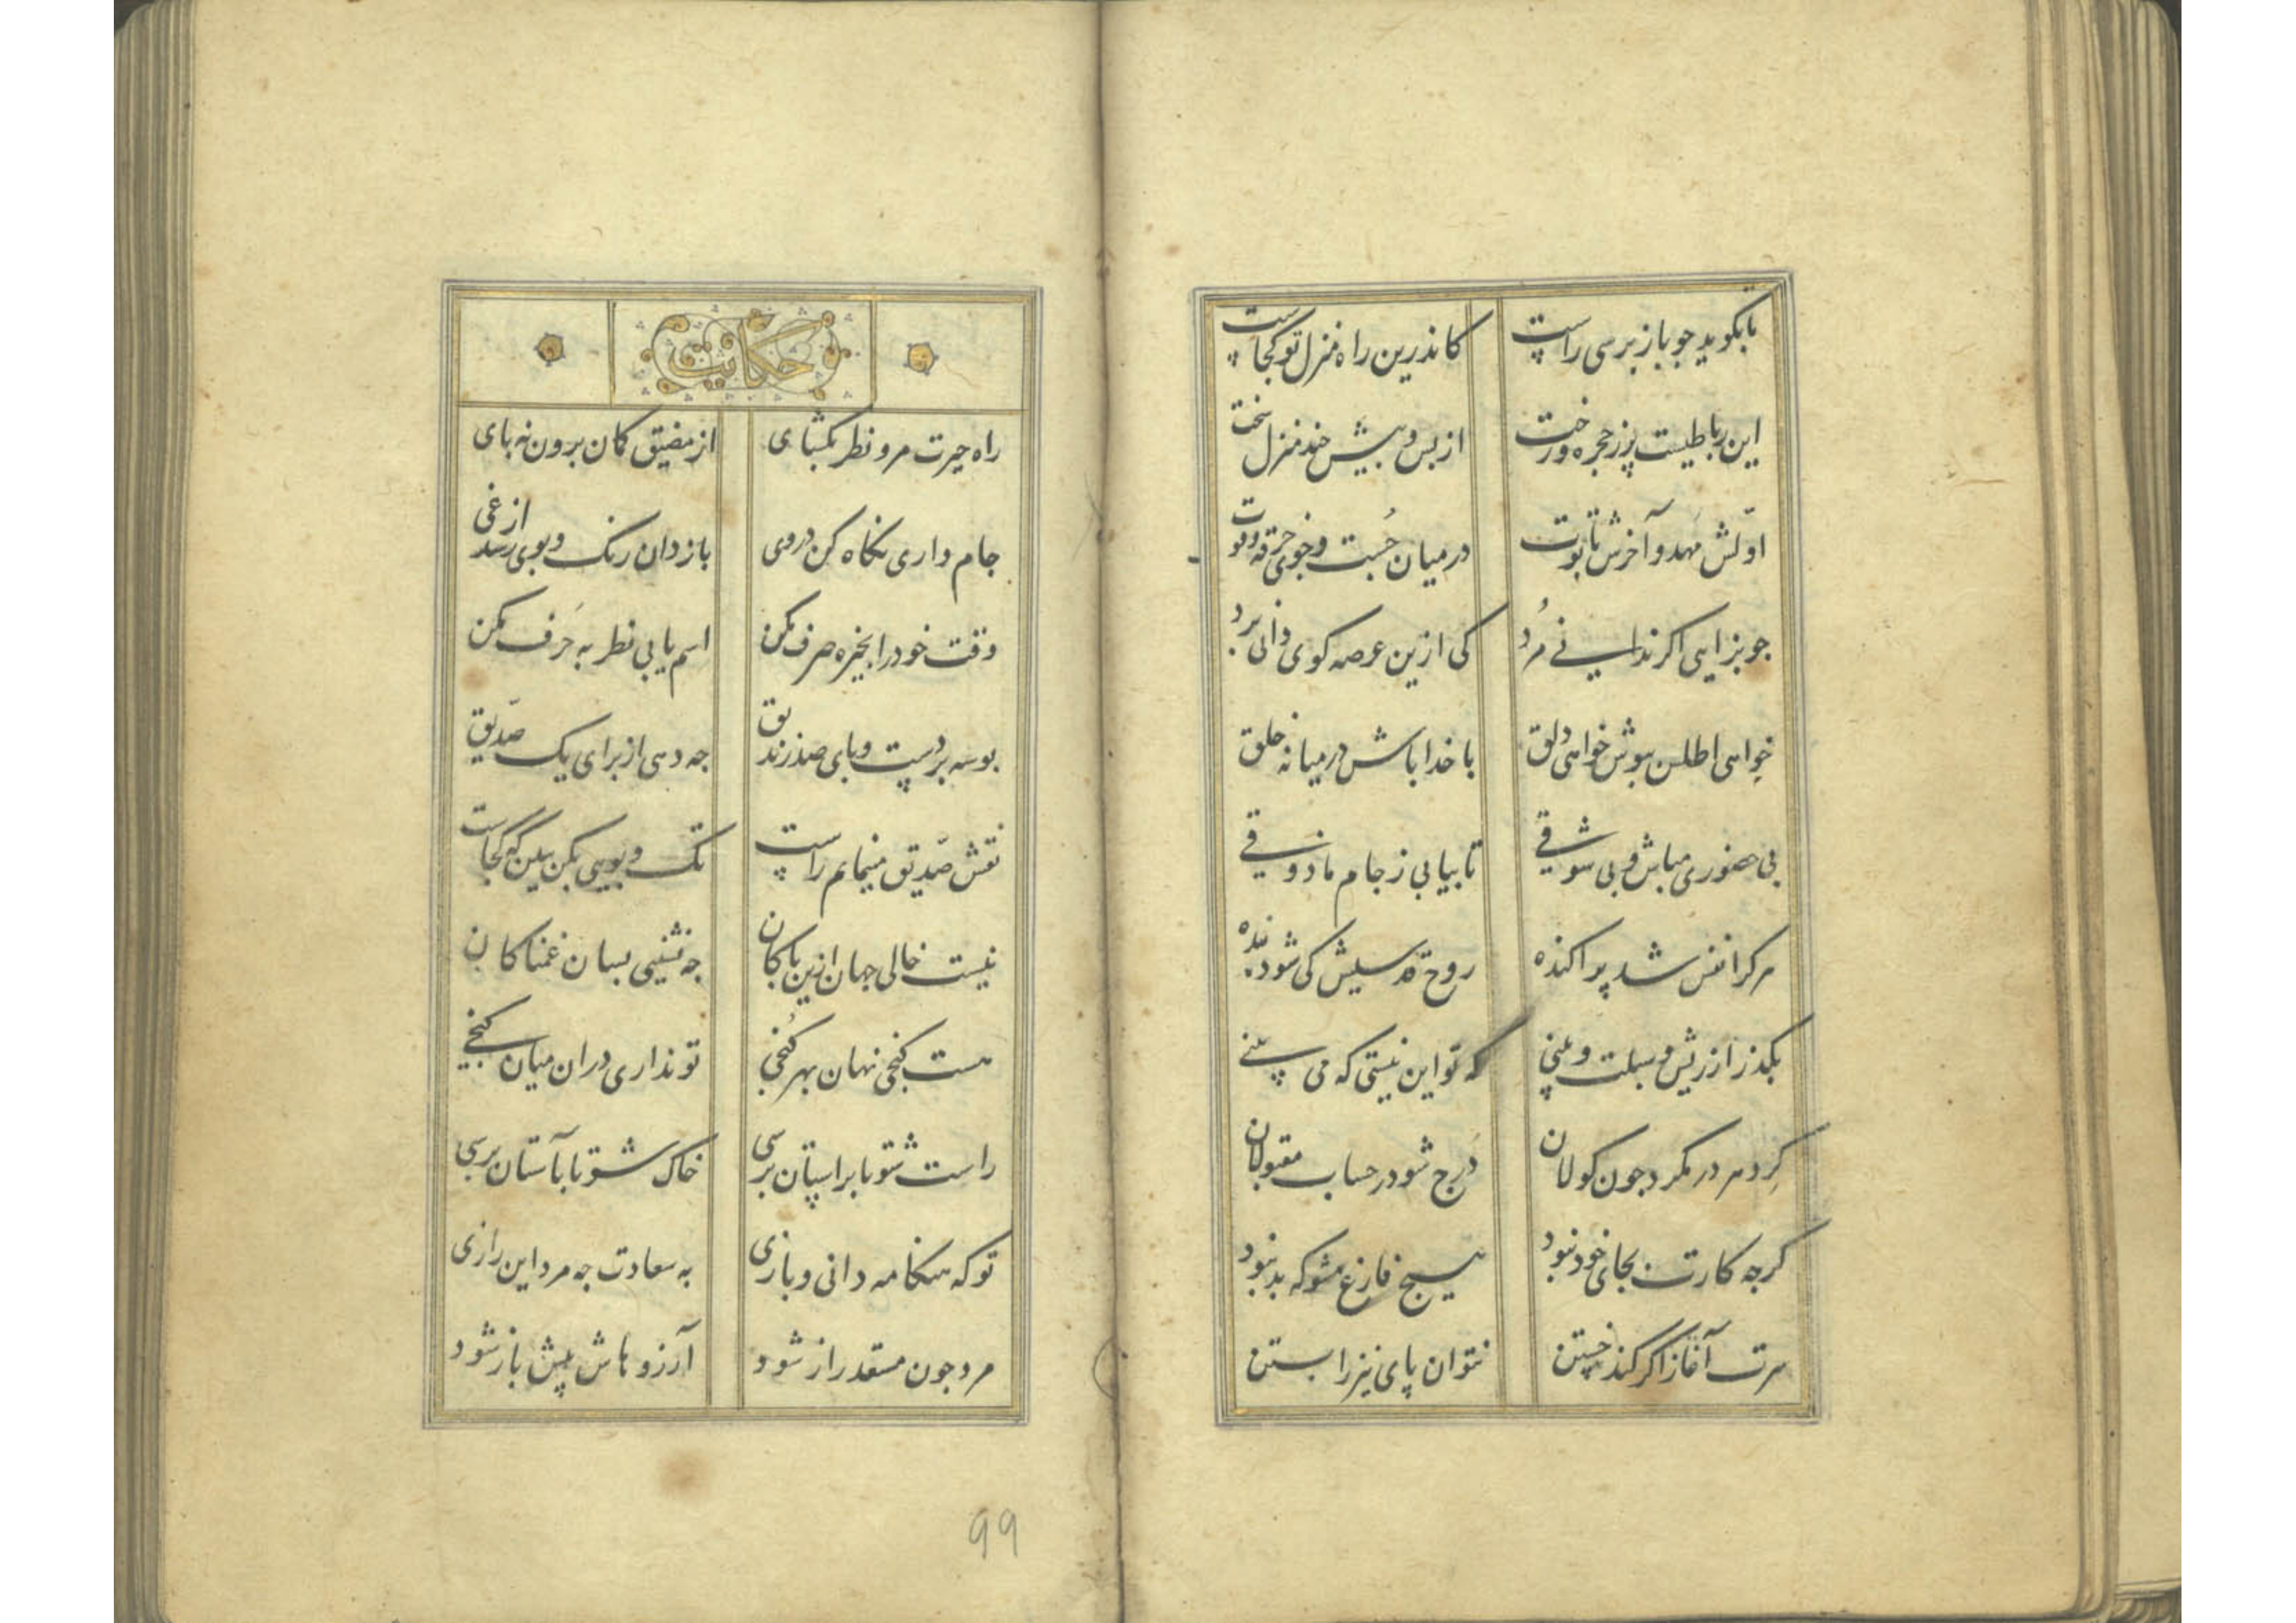 تا بکوید جو باز برسی راست کاندرین راه منزل تو کجاست
این رباطیست پر ز حجره و رخت از بس و بیش جند منزل سخت
اوّلش مهد و آخرش تابوت در میان جُست و جوی خرقه و قوت
جو بزایی اکر ندانی مُرد کی ازین عرصه کوی دانی برد
خواهی اطلس بپوش خواهی دلق با خدا باش در میانه خلق
بی حضوری مباش و بی شوقی تا بیابی ز جام ما ذوقی
هر کرا نفس شد پراکنده روح قدسیش کی شود زنده
بکذر از ریش و سبلت و بینی که تو این نیستی که می بینی
کرد هر در مکرد جون کولان دَرج شو در حساب مقبولان
کرجه کارت بجای خود نبود هیج فارغ مشو که بد نبود
سرت آغاز اکر کند خستن نتوان پای نیز را بستن
حکایت
راه حیرت مرو نظر بکشای از مضیق کمان برون نه بای
جام داری نکاه کن در وی باز دان رنک و بوی رسد از غی
وقت خود را بخیره صرف مکن اسم یابی نظر به حَرف مکن
بوسه بر دست و بای صد زندیق جه دهی از برای یک صدّیق
نقش صدّیق مینمایم راست تک و بویی بکن ببین که کجاست
نیست خالی جهان ازین باکان جه نشینی بسان غمناکان
هست کنجی نهان بهر کُنجی تو نداری در ان میان کنجی
راست شو تا براستان برسی خاک شو تا بآستان برسی
تو که هنکامه دانی و بازی به سعادت جه مرد این رازی
مرد جون مستعد راز شود آرزوهاش پیش باز شود
99